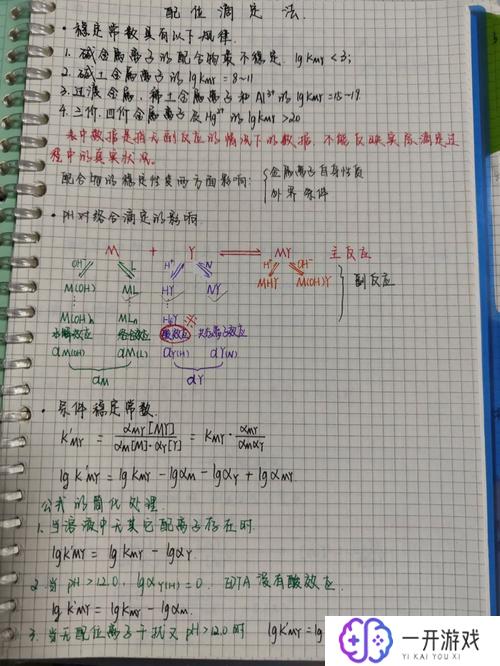 配位滴定法.
· 稳定常数具有以下规律.
1. 碱金属离子的配合物最不稳定. lgKMY < 3;
2. 碱土金属离子的 lgKMY = 8~11
3. 过渡金属、稀土金属离子和Al³⁺的lgKMY=15~19.
4. 三价、四价金属离子及Hg²⁺的lgKMY>20
表中数据是指无副反应的情况下的数据, 不能反映实际滴定过
程中的真实状况.
配合物的稳定性受两方面影响: { 金属离子自身性质
外界条件
· PH对络合滴定的影响.
M + Y ⇌ MY 主反应
OH⁻ L H⁺ N H⁺ OH⁻
M(OH) ML HY NY MHY M(OH)Y } 副反应
⋮ ⋮ ⋮
M(OH)n MLn H6Y ※
水解效应 络合效应 酸效应 共存离子效应
αM(OH) αM(L) αY(H) αY(N)
αM αY
· 条件稳定常数.
K'MY = αMY[MY] / αM[M]·αY[Y] = KMY · αMY / αMαY
lgK'MY = lgKMY - lgαM - lgαY + lgαMY
公式的简化处理.
1. 当溶液中无其它配离子存在时.
lgK'MY = lgKMY - lgαY.
2. 当 pH>12.0, lgαY(H)=0. EDTA没有酸效应.
lgK'MY = lgKMY - lgαM.
3. 当无配位离子干扰又pH>12.0时 lgK'MY = lg
一开游戏
YI KAI YOU XI